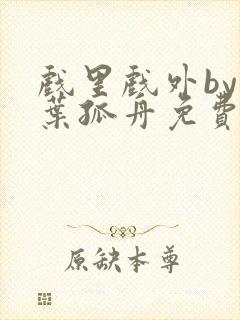 戏里戏外by
葉孤丹免費
原缺本尊